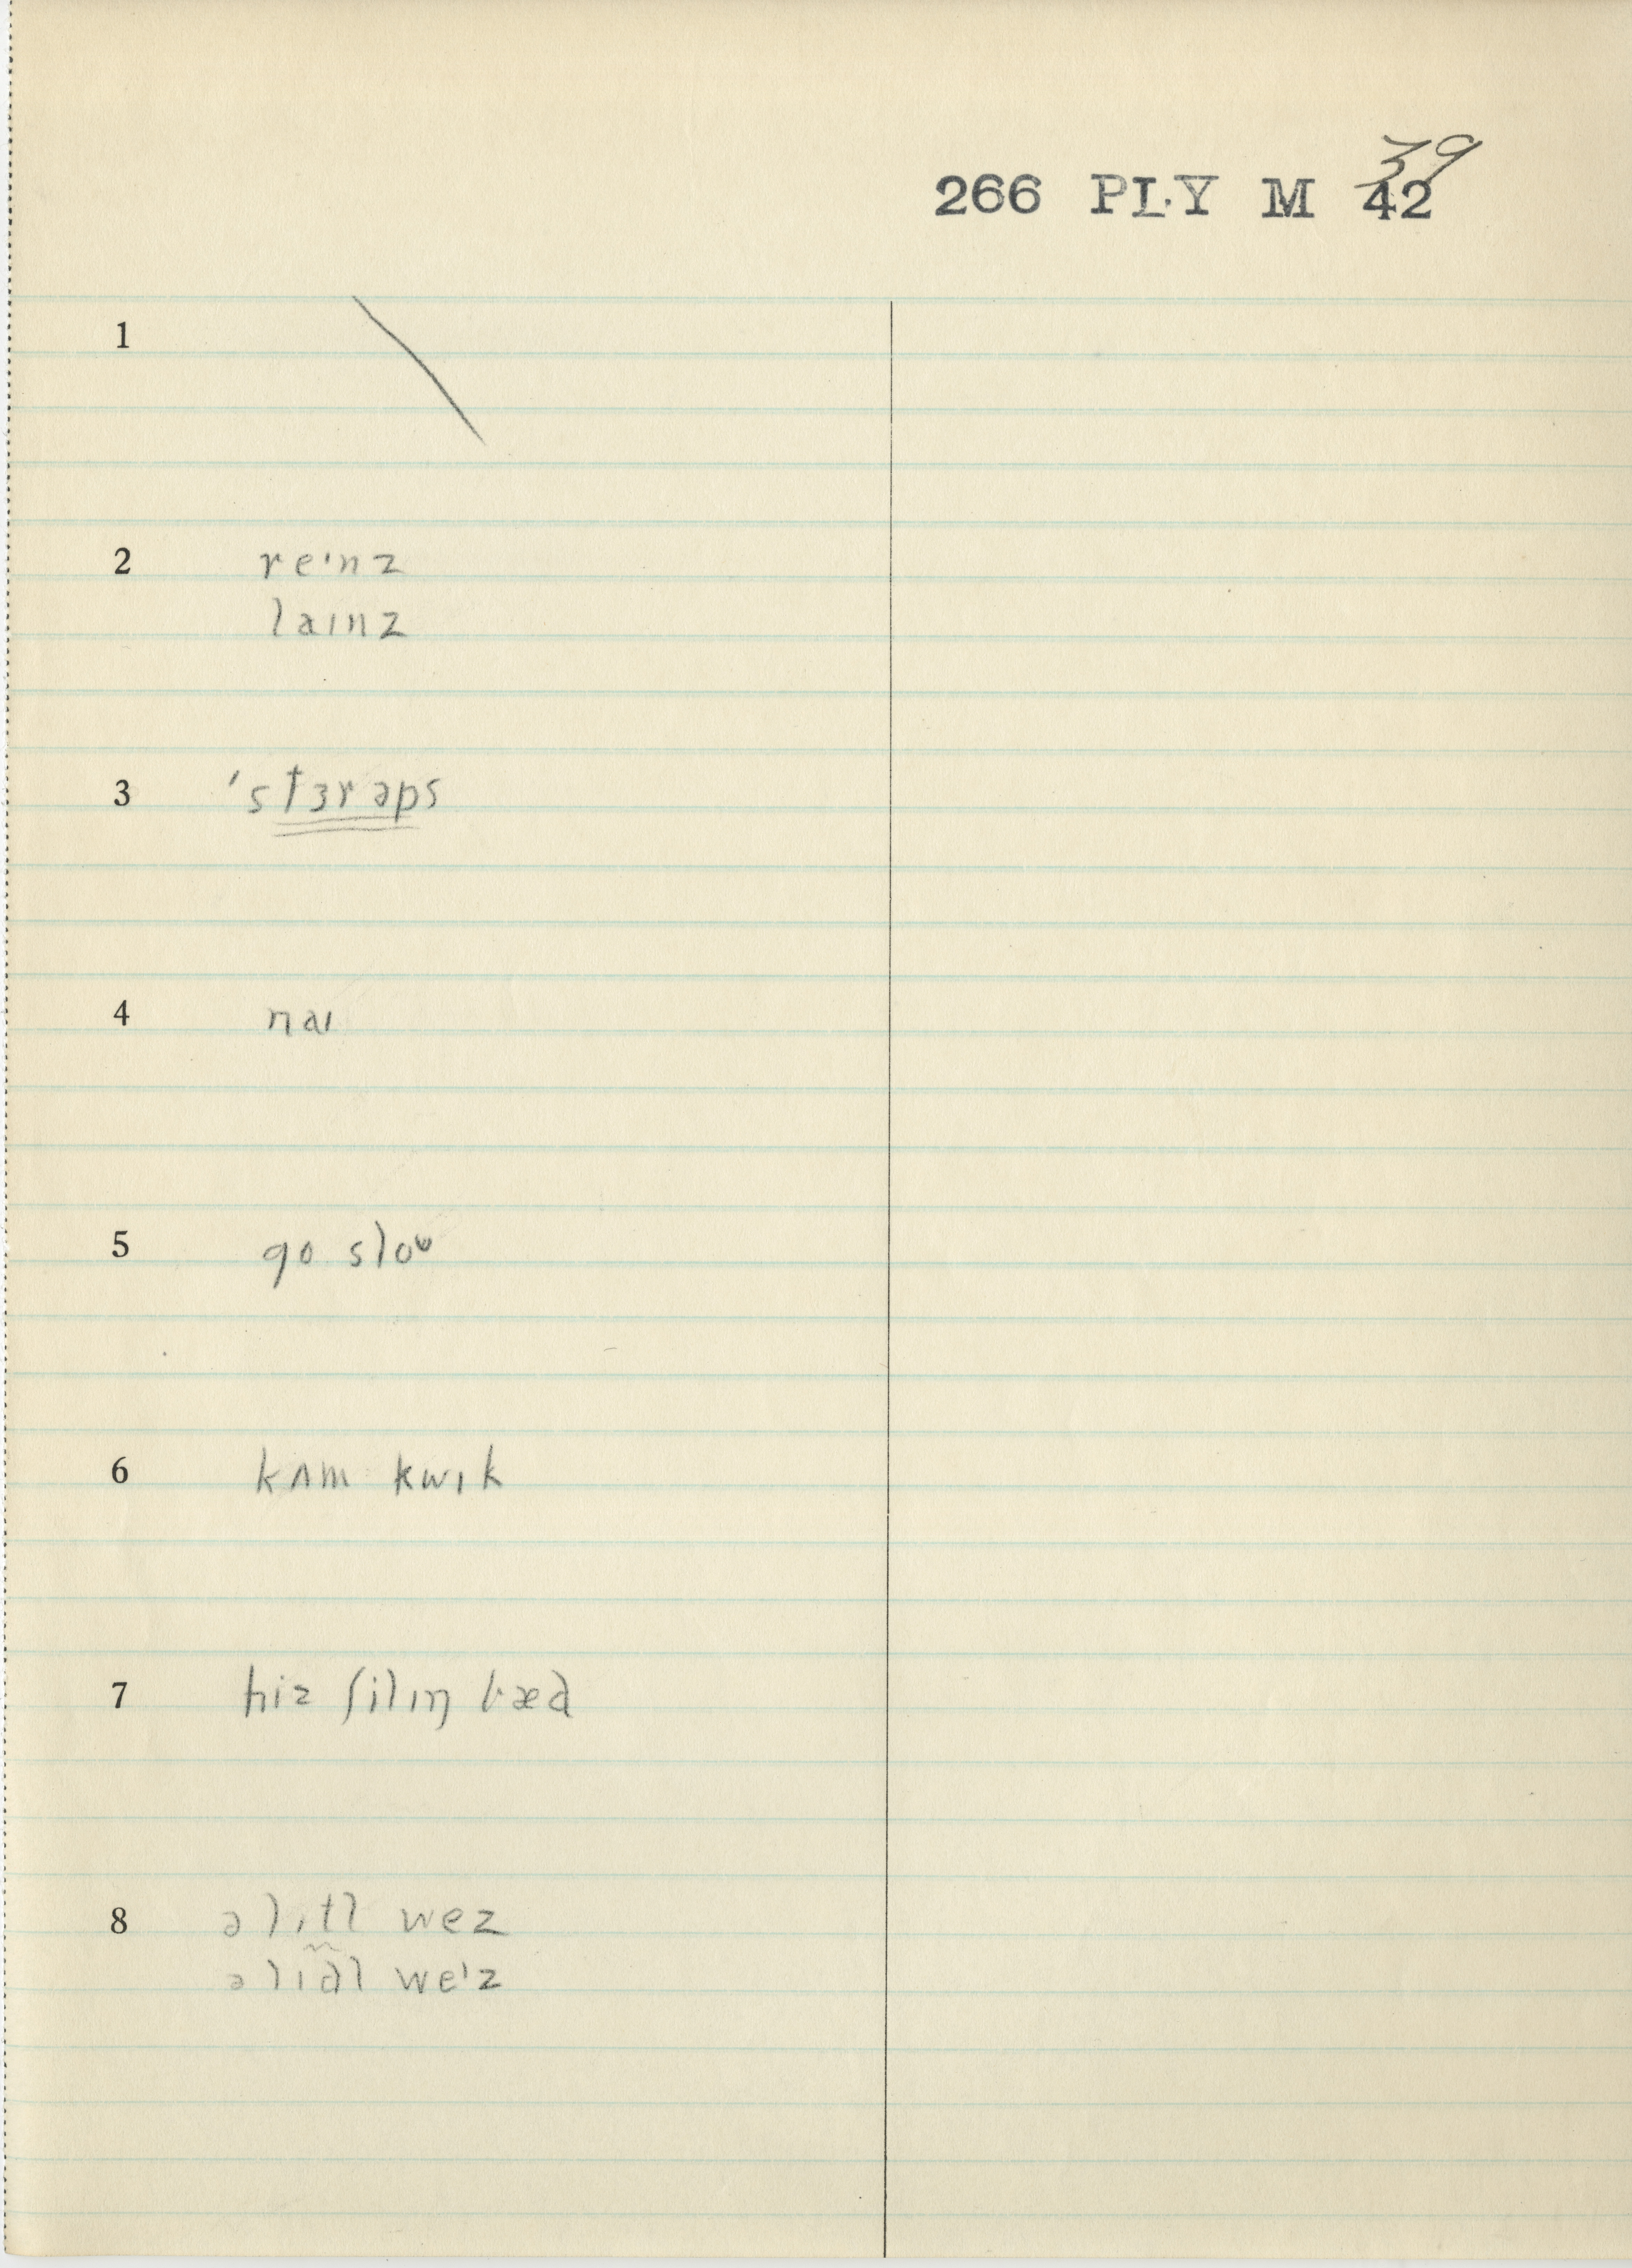 39
266 PLY M 42
1
2 reᶦnz
laɪnz
3 ˈstɜrəps
4 naɪ
5 go sloᶷ
6 kʌm kwɪk
7 hiz filɪŋ bæd
8 ə lɪtl wez
ə lɪd̃l weᶦz